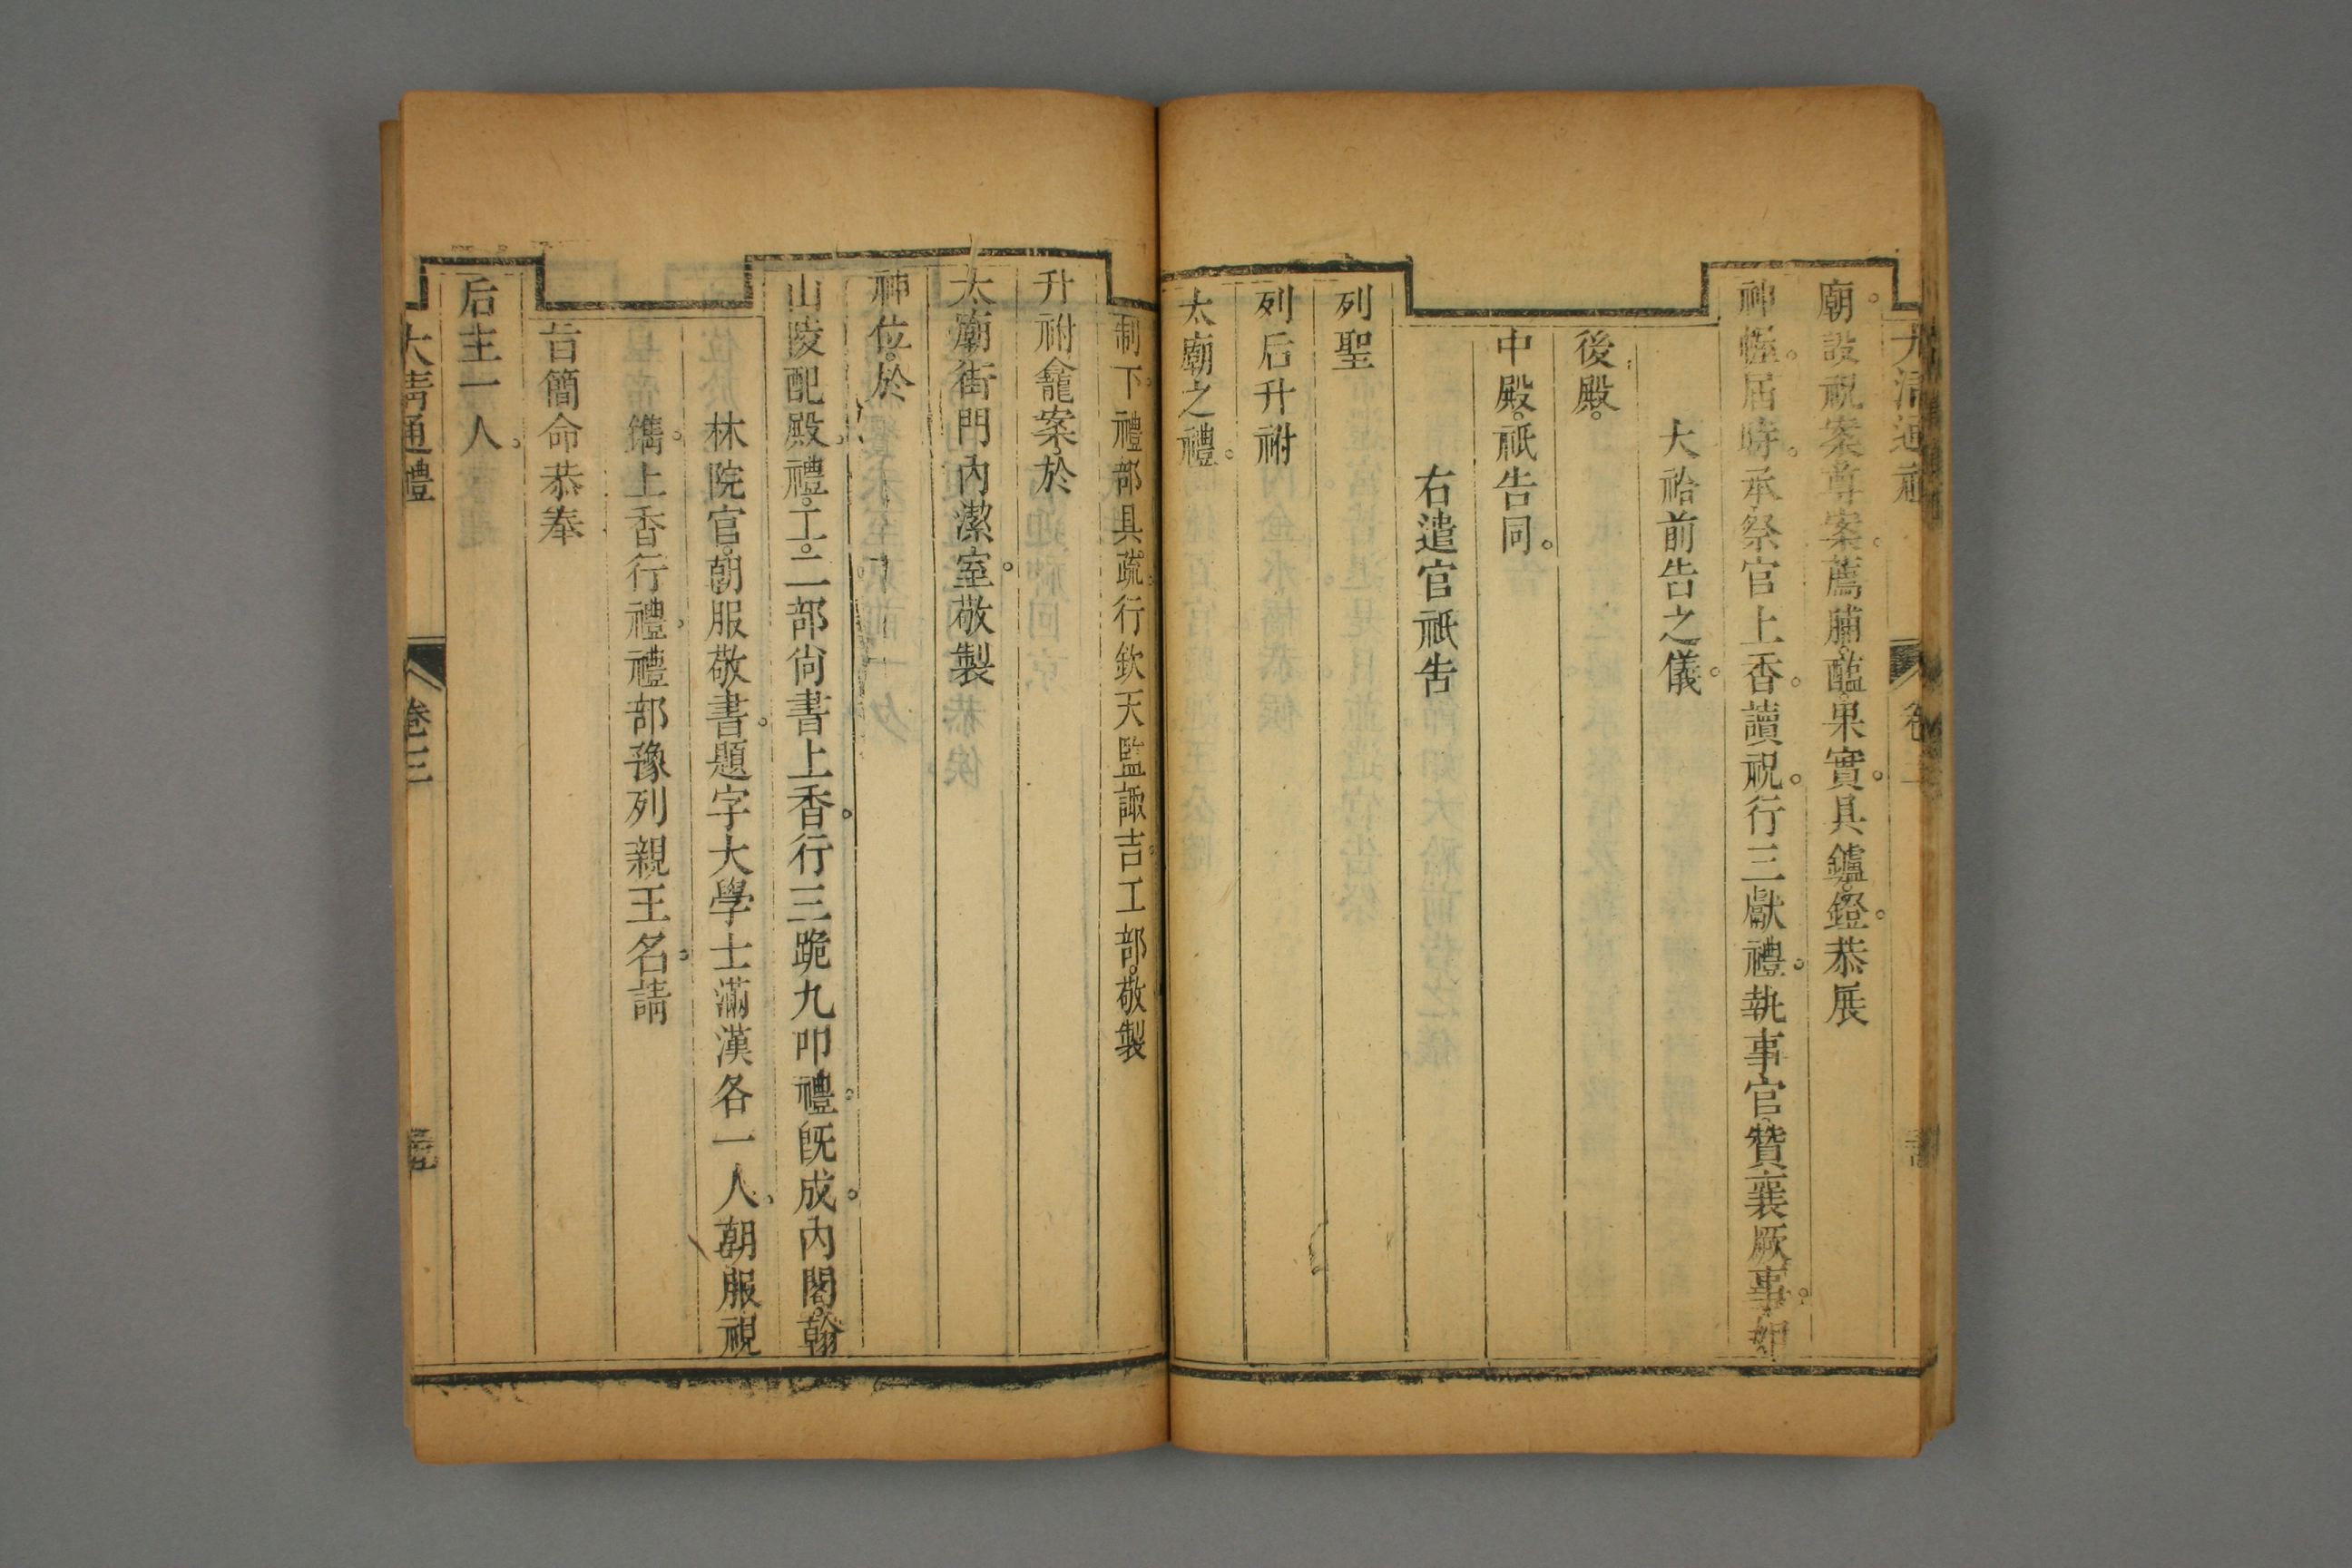 廟。設祝案尊案。薦脯。醢。果實。具鑪。鐙。恭展
神幄。屆時。承祭官上香。讀祝。行三獻禮。執事官。贊襄厥事。如
大祫前告之儀。
後殿。
中殿。祇告同。
右遣官祇告
列聖
列后升祔
太廟之禮。
制下。禮部具疏。行欽天監諏吉。工部。敬製
升祔龕案。於
太廟街門內潔室。敬製
神位。於
山陵配殿。禮。工。二部尙書上香。行三跪九叩禮。旣成。內閣。翰
林院官。朝服敬書。題字大學士滿漢各一人。朝服視
鐫。上香行禮。禮部豫列親王名。請
旨簡命恭奉
后主一人。
大清通禮
卷三